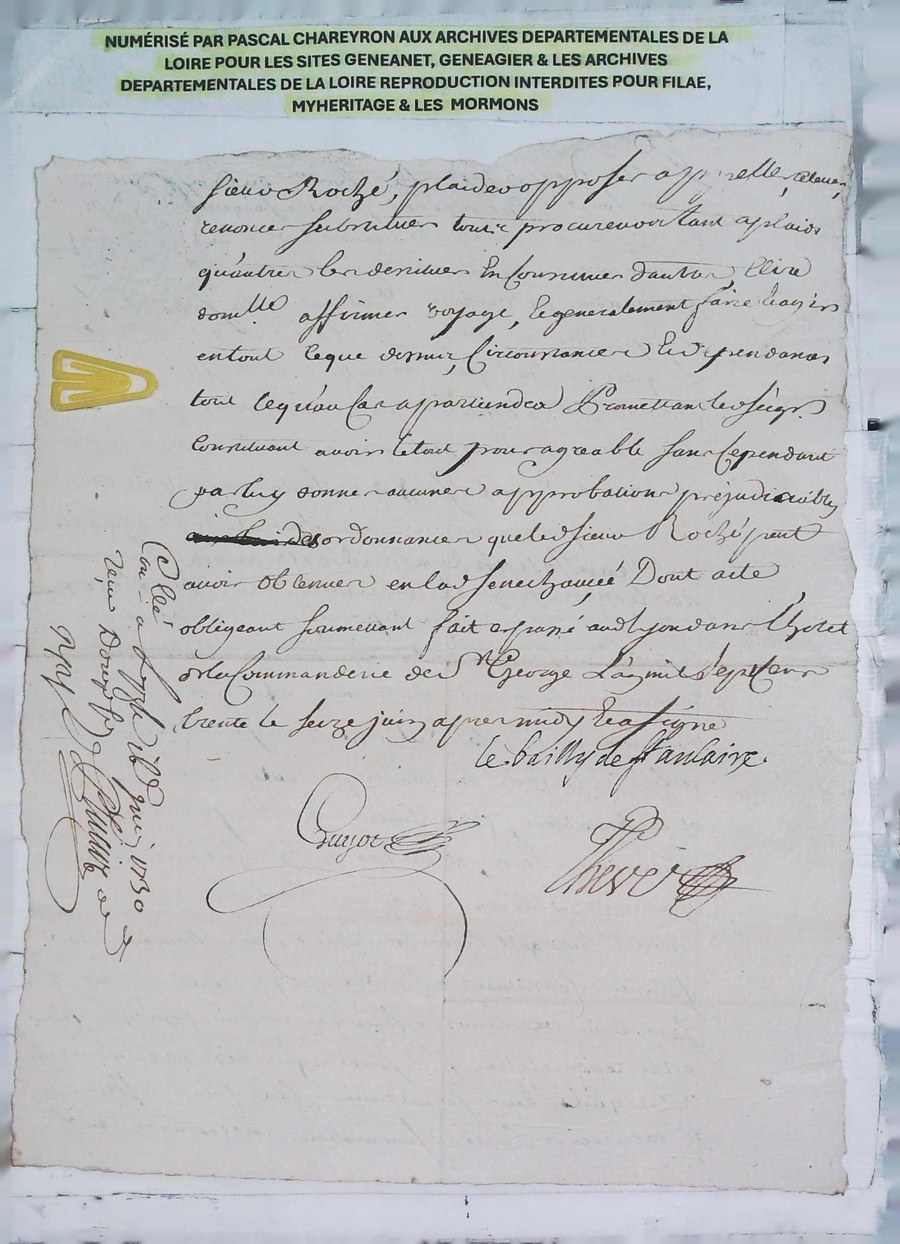 NUMÉRISÉ PAR PASCAL CHAREYRON AUX ARCHIVES DEPARTEMENTALES DE LA
LOIRE POUR LES SITES GENEANET, GENEAGIER & LES ARCHIVES
DEPARTEMENTALES DE LA LOIRE REPRODUCTION INTERDITES POUR FILAE,
MYHERITAGE & LES MORMONS
sieur Rozhé, plaider opposer appeller
renoncer substituer tout procureur tant a plaids
quautres les destituer En Constituer dautre Elire
domille affirmer voyage, & generalement faire & agir
en tout ceque dessus, Circonstances & dependances
tout cequ'au Cas apartiendra Promettant led seigr
Constituant avoir letout pour agreable sans Cependant
par luy donner aucune approbation préjudiciable
des ordonnances que led sieur Rozhé peut
avoir obtenues en lad senechaucée Dont acte
obligeant soumettant fait & passé aud Lyon dans L'hotel
de la Commanderie de St George L'an mil sept Cens
trente le seize juin apres midy & a signe
le bailly de st aulaire.
Guyot
Thevé
Collé
1730